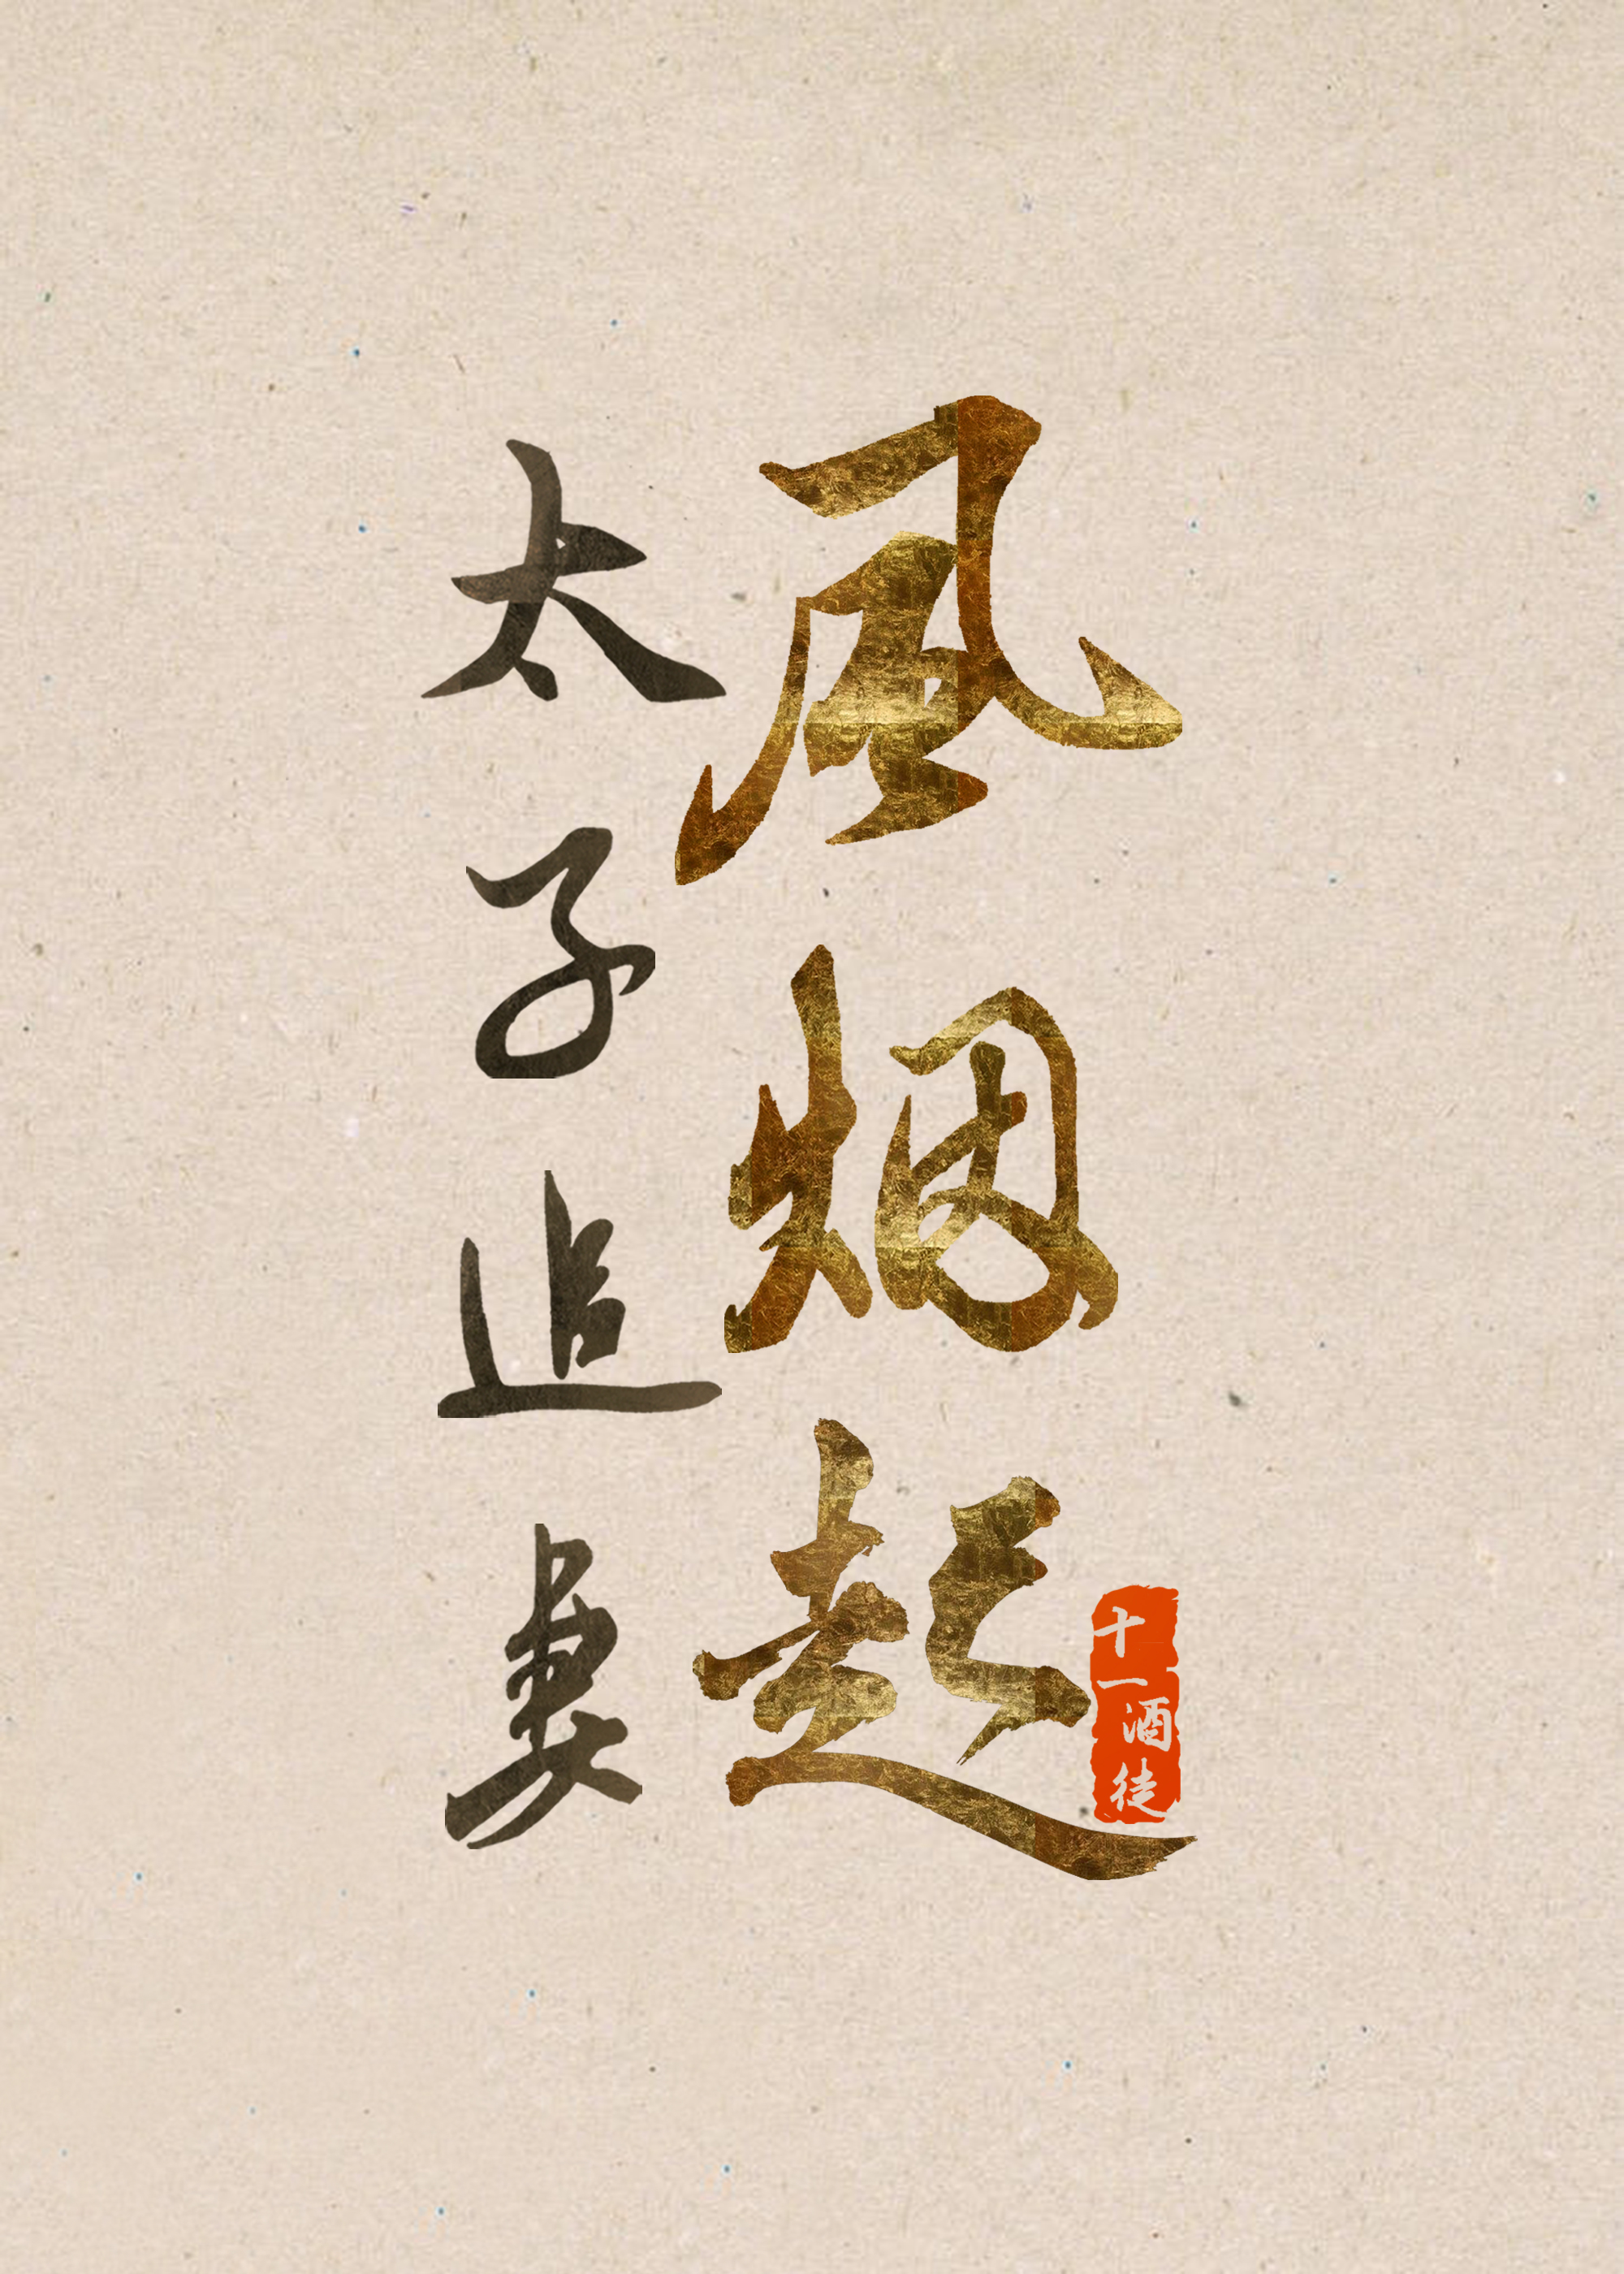 风烟起
太子追妻
十一酒徒